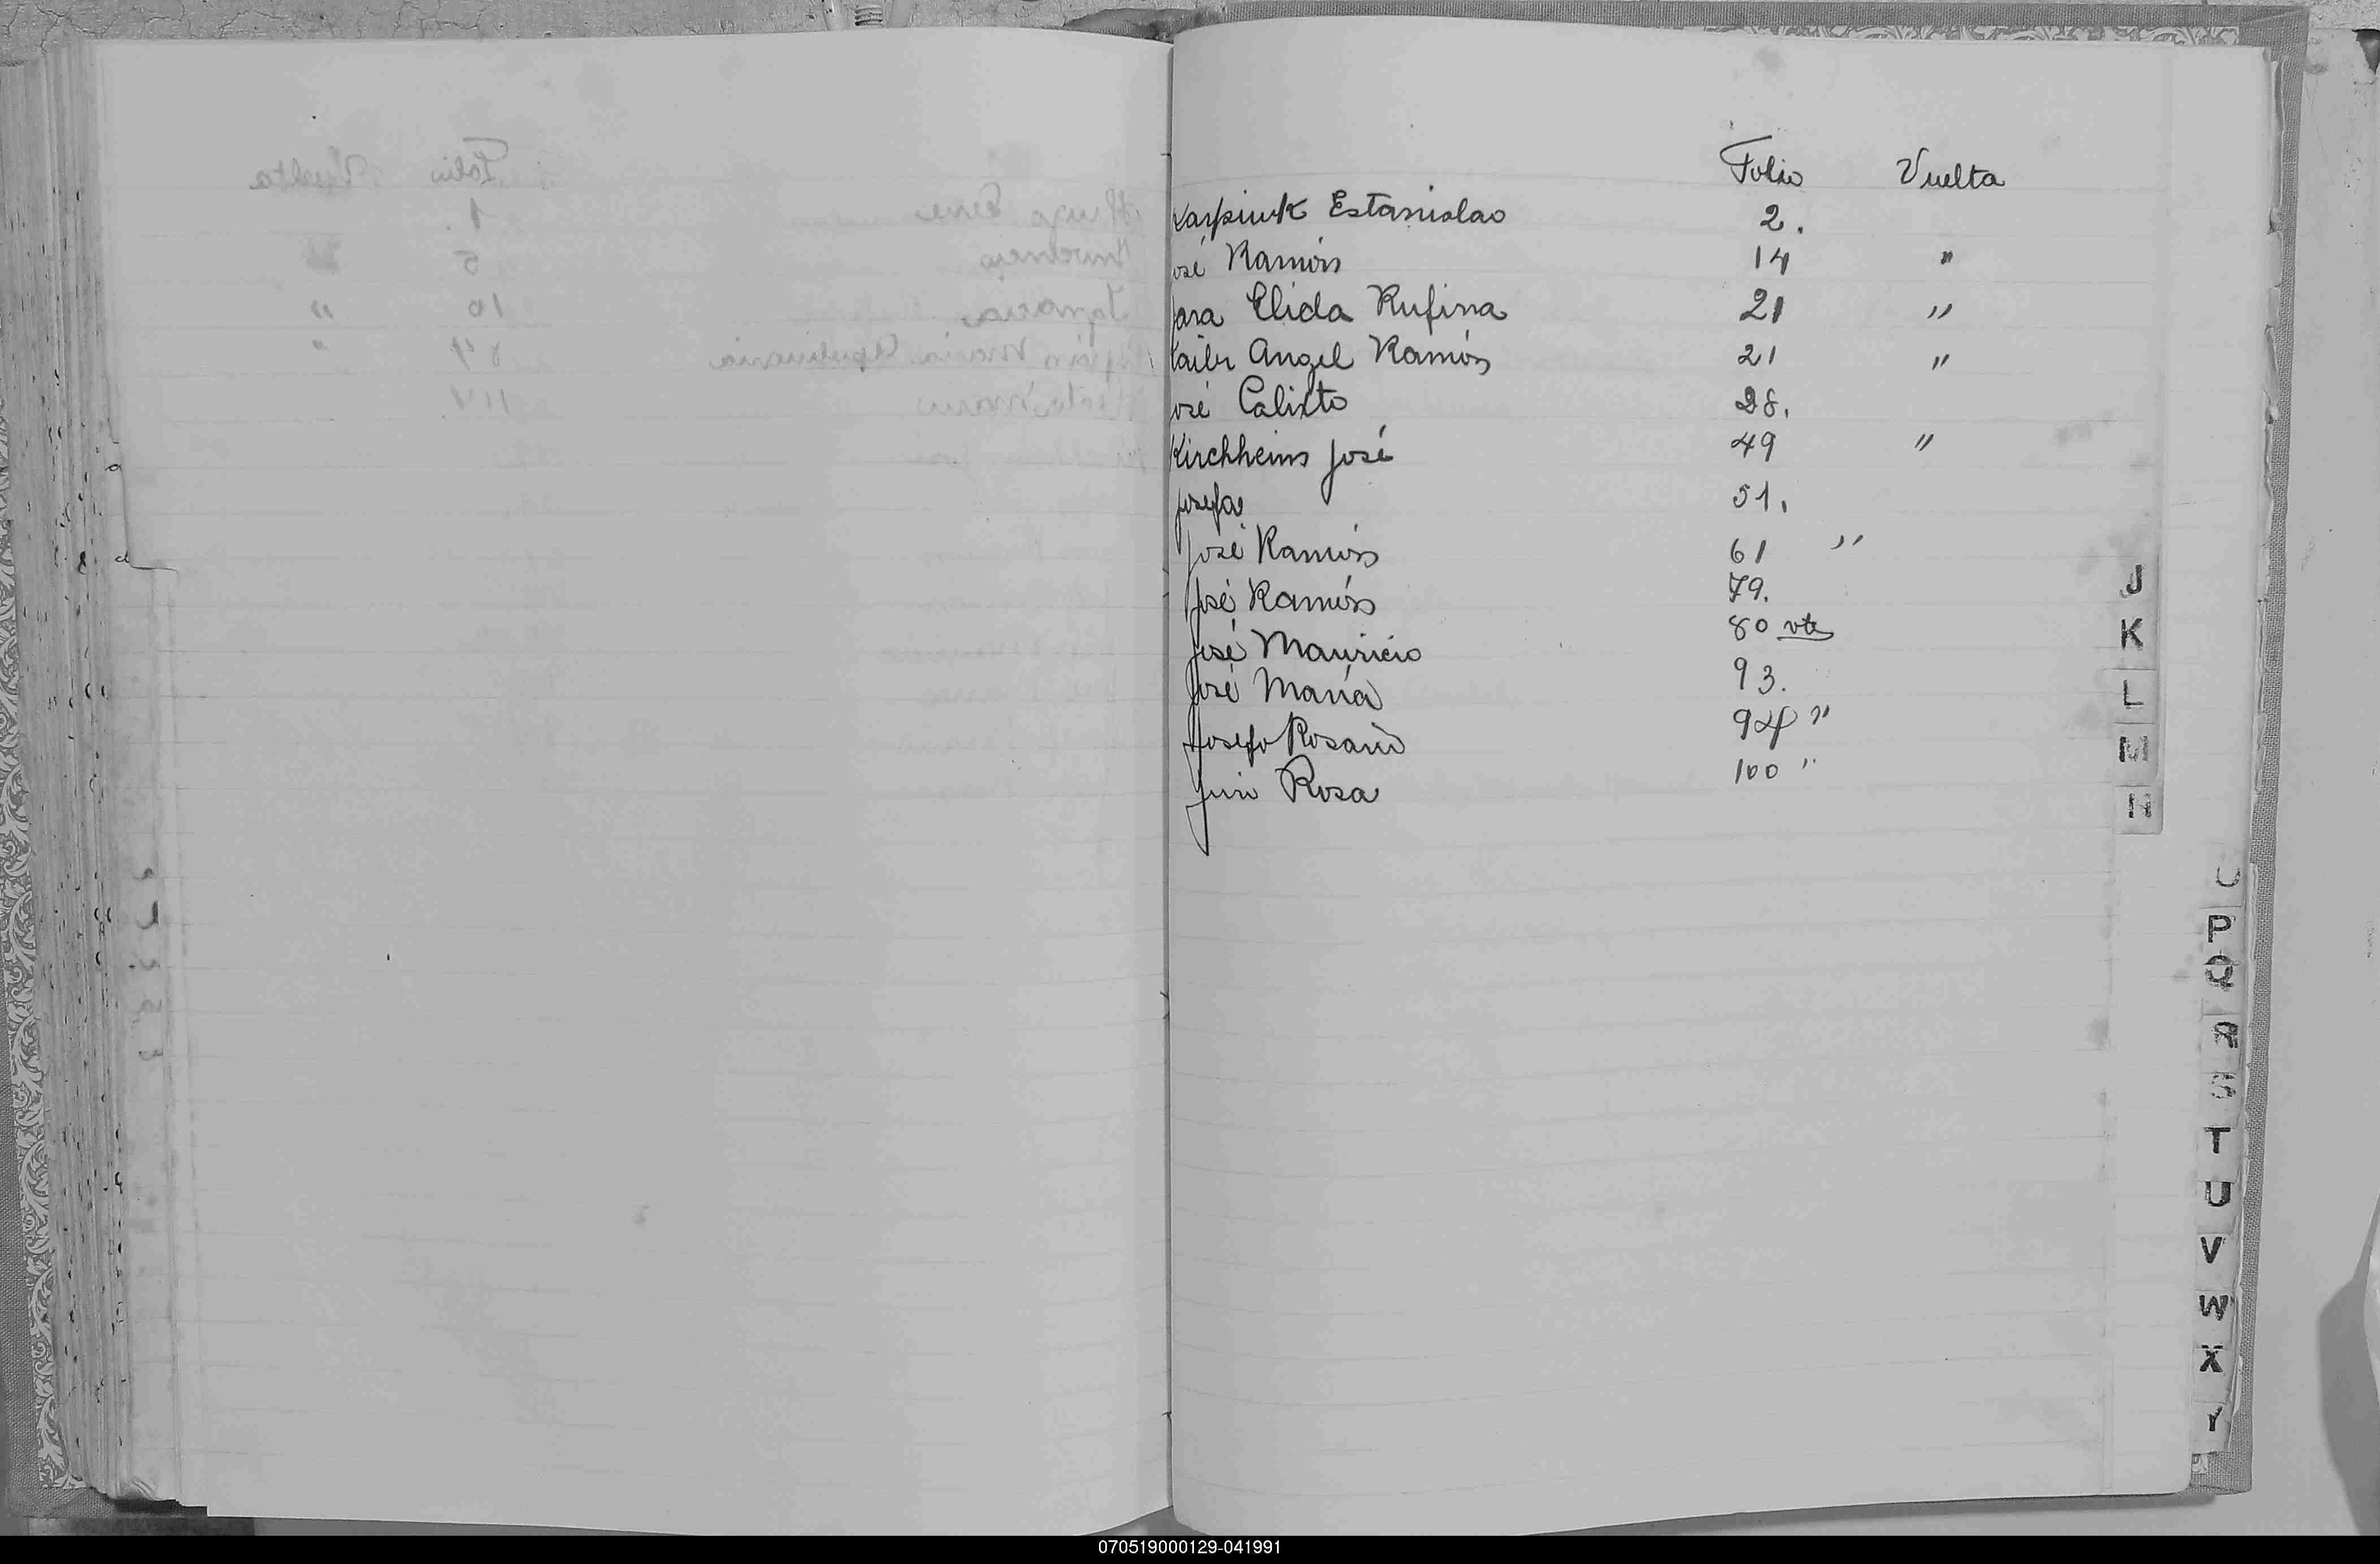 Folio Vuelta
Karpiuk Estanislao 2.
José Ramón 14 "
Jara Elida Rufina 21 "
Angel Ramón 21 "
José Calixto 28.
Kirchheim José 49 "
Josefa 51.
José Ramón 61 "
José Ramón 79.
José Mauricio 80 vta
José María 93.
Josefa Rosario 94 "
Rosa 100 "
J
K
L
M
N
P
Q
R
S
T
U
V
W
X
Y
070519000129-041991